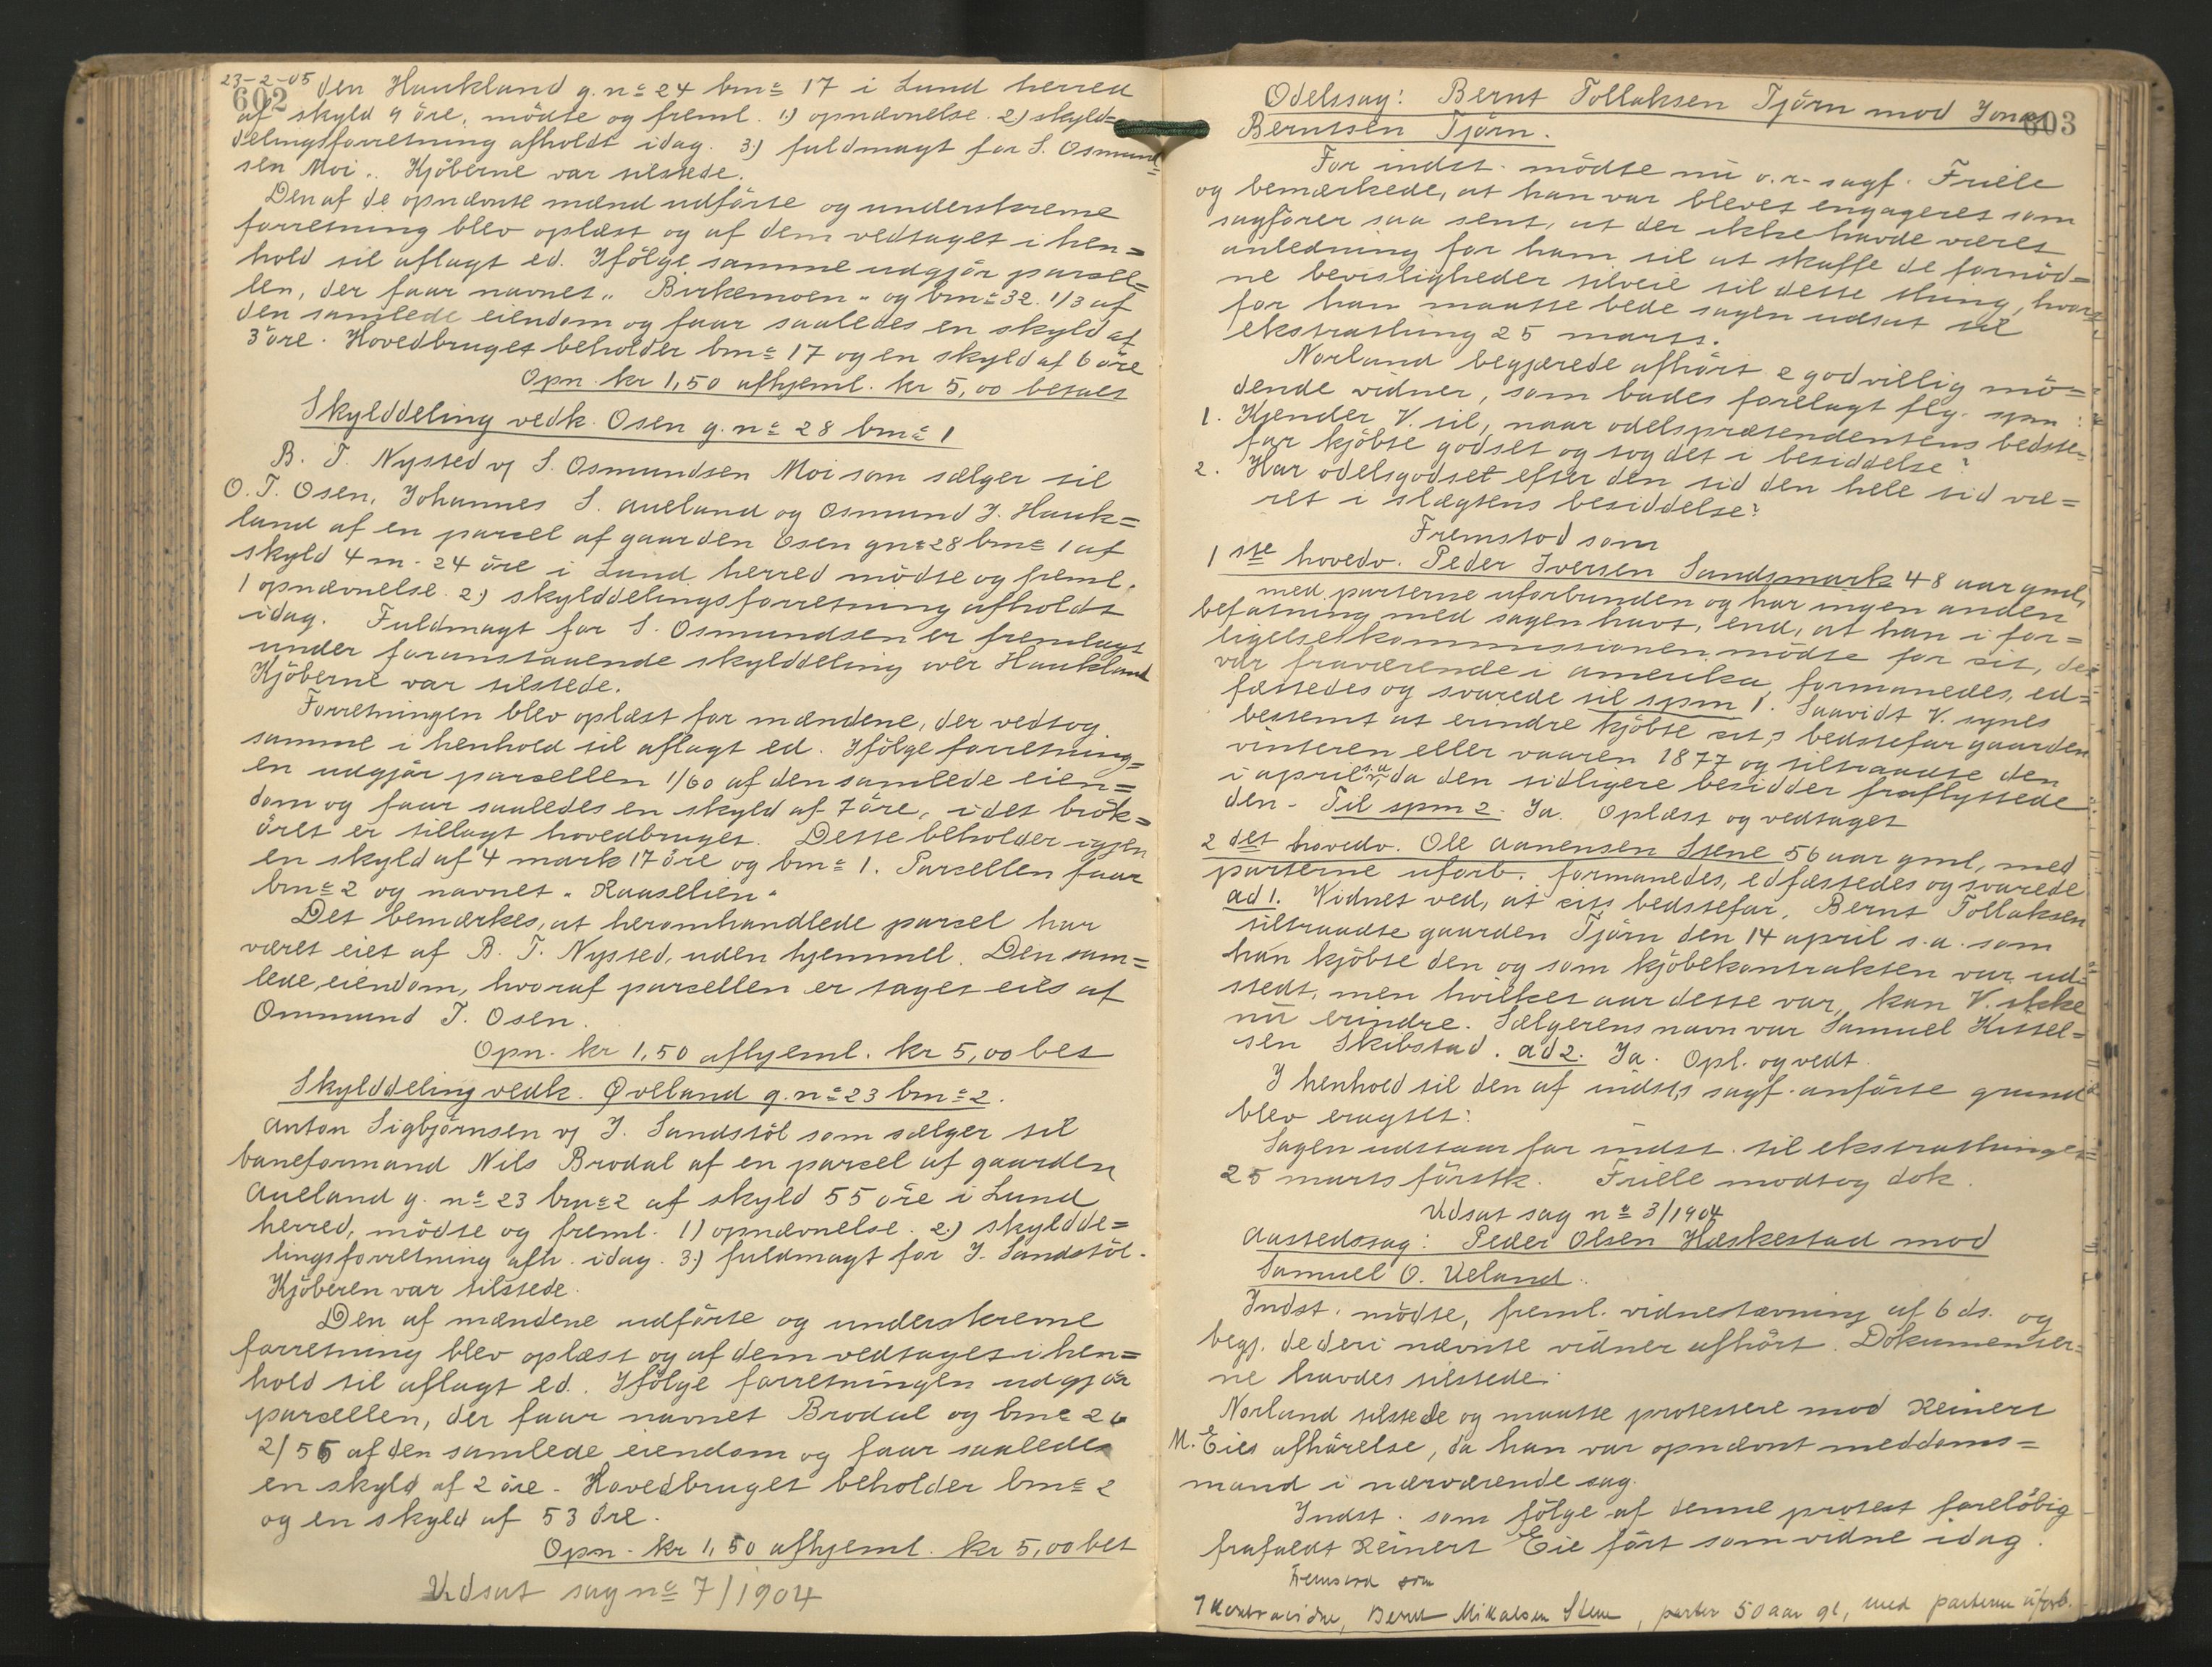 23-2-05
602
den Haukland g. no 24 bno 17 i Lund herred
af skyld 9 öre, mödte og freml. 1) opnævnelse. 2) skyld=
delingsforretning afholdt idag. 3) fuldmagt for S. Osmund=
sen Moi. Kjöberne var tilstede.
Den af de opnævnte mænd udförte og underskrevne
forretning blev oplæst og af dem vedtaget i hen=
hold til aflagt ed. Ifölge samme udgjör parcel=
len, der faar navnet „Birkemoen" og bno 32. 1/3 af
den samlede eiendom og faar saaledes en skyld af
3 öre. Hovedbruget beholder bno 17 og en skyld af 6 öre
Opn. kr 1,50 afhjeml. kr 5,00 betalt
Skylddeling vedk. Osen g. no 28 bno 1
B. T. Nysted og S. Osmundsen Moi som sælger til
O. T. Osen, Johannes S. Aueland og Osmund J. Hauk=
land af en parcel af gaarden Osen gno 28 bno 1 af
skyld 4 m. 24 öre i Lund herred mödte og freml.
1 opnævnelse. 2) skylddelingsforretning afholdt
idag. Fuldmagt for S. Osmundsen er fremlagt
under foranstaaende skylddeling over Haukland
Kjöberne var tilstede.
Forretningen blev oplæst for mændene, der vedtog
samme i henhold til aflagt ed. Ifölge forretning=
en udgjör parcellen 1/60 af den samlede eien=
dom og faar saaledes en skyld af 7 öre, idet brök=
öret er tillagt hovedbruget. Dette beholder igjen
en skyld af 4 mark 17 öre og bno 1. Parcellen faar
bno 2 og navnet „Raaselien"
Det bemærkes, at heromhandlede parcel har
været eiet af B. T. Nysted, uden hjemmel. Den sam=
lede eiendom, hvoraf parcellen er taget eies af
Ommund T. Osen.
Opn. kr 1,50 afhjeml. kr 5,00 bet
Skylddeling vedk. Øveland g. no 23 bno 2.
Anton Sigbjörnsen og J. Sandstöl som sælger til
baneformand Nils Brodal af en parcel af gaarden
Aueland g. no 23 bno 2 af skyld 55 öre i Lund
herred, mödte og freml. 1) opnævnelse. 2) skyldde=
lingsforretning afh. idag. 3) fuldmagt for J. Sandstöl.
Kjöberen var tilstede.
Den af mændene udförte og underskrevne
forretning blev oplæst og af dem vedtaget i hen=
hold til aflagt ed. Ifölge forretningen udgjör
parcellen, der faar navnet Brodal og bno 26
2/55 af den samlede eiendom og faar saaledes
en skyld af 2 öre. Hovedbruget beholder bno 2
og en skyld af 53 öre.
Opn. kr 1,50 afhjeml. kr 5,00 bet
Udsat sag no 7/1904
603
Odelssag: Bernt Tollaksen Tjörn mod Jonas
Berntsen Tjörn.
For indst. mödte nu o.r. sagf. Friele
og bemærkede, at han var blevet engageret som
sagförer saa sent, at der ikke havde været
anledning for ham til at skaffe de fornöd=
ne bevisligheder tilveie til dette thing, hvor=
for han maatte bede sagen udsat til
ekstrathing 25 marts.
Norland begjærede afhört 2 godvillig mö=
dende vidner, som bades forelagt flg. spm:
1. Kjender V. til, naar odelsprætendentens bedste=
far kjöbte godset og tog det i besiddelse?
2. Har odelsgodset efter den tid den hele tid væ=
ret i slægtens besiddelse?
Fremstod som
1ste hovedv. Peder Iversen Sandsmark 48 aar gml,
med parterne uforbunden og har ingen anden
befatning med sagen havt, end, at han i for=
ligelseskommissionen mödte for cit, der
var fraværende i amerika, formanedes, ed=
fæstedes og svarede til spm 1. Saavidt V. synes
bestemt at erindre kjöbte cit,s bedstefar gaarden
vinteren eller vaaren 1877 og tiltraadte den
i april s.a. da den tidligere besidder fraflyttede
den. Til spm 2. Ja. Oplæst og vedtaget
2det hovedv. Ole Aanensen Stene 56 aar gml, med
parterne uforb. formanedes, edfæstedes og svarede
ad 1. Vidnet ved, at cits bedstefar, Bernt Tollaksen
tiltraadte gaarden Tjörn den 14 april s.a. som
han kjöbte den og som kjöbekontrakten var ud=
stedt, men hvilket aar dette var, kan V. ikke
nu erindre. Sælgerens navn var Samuel Kittel=
sen Skibstad. ad 2. Ja. Opl. og vedt.
I henhold til den af indst,s sagf. anförte grund
blev eragtet:
Sagen udstaar for indst. til ekstrathinget
25 marts förstk. Friele modtog dok.
Udsat sag no 3/1904
Aastedssag: Peder Olsen Hæskestad mod
Samuel O. Ueland.
Indst. mödte, freml. vidnestævning af 6 ds. og
begj. de deri nævnte vidner afhört. Dokumenter=
ne havdes tilstede.
Norland tilstede og maatte protestere mod Reinert
M. Eies afhörelse, da han var opnævnt meddoms=
mand i nærværende sag.
Indst. som fölge af denne protest foreløbig
frafaldt Reinert Eie fört som vidne idag.
Fremstod som
1 Kontravidne, Bernt Mikalsen Stene, 50 aar gl, med parterne uforb.